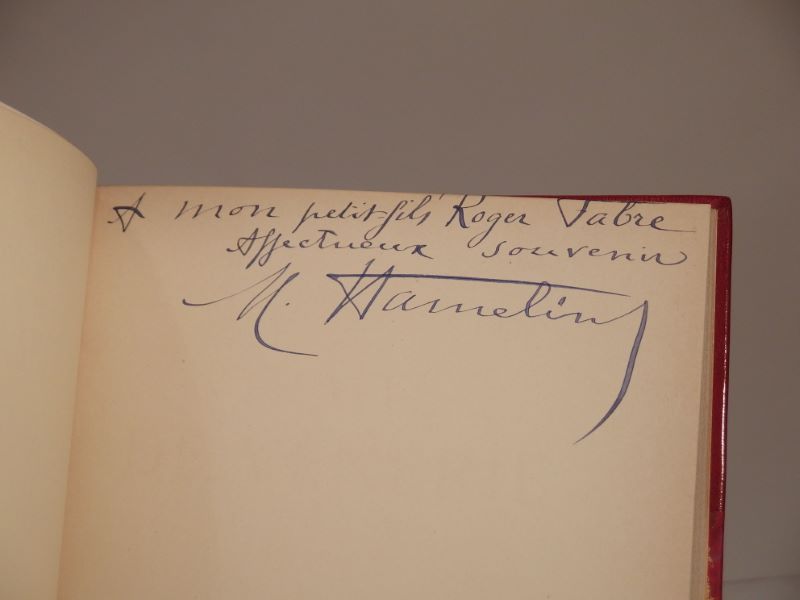 A mon petit-fils Roger Fabre
Affectueux souvenir
M. Hamelin